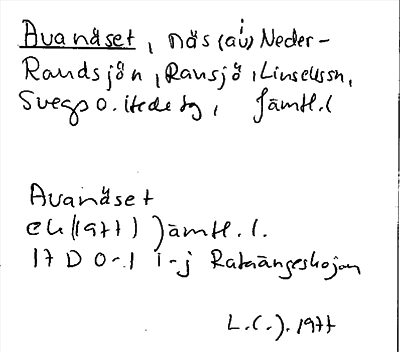 Avanäset, näs (av) i Neder-
Randsjön, Ransjö, Linsellssn,
Svegs o. Hede tg, Jämtl. l
Avanäset
ek (1977) Jämtl. l.
17 D 0-1 i-j Rataängeskojan
L. C. J. 1977